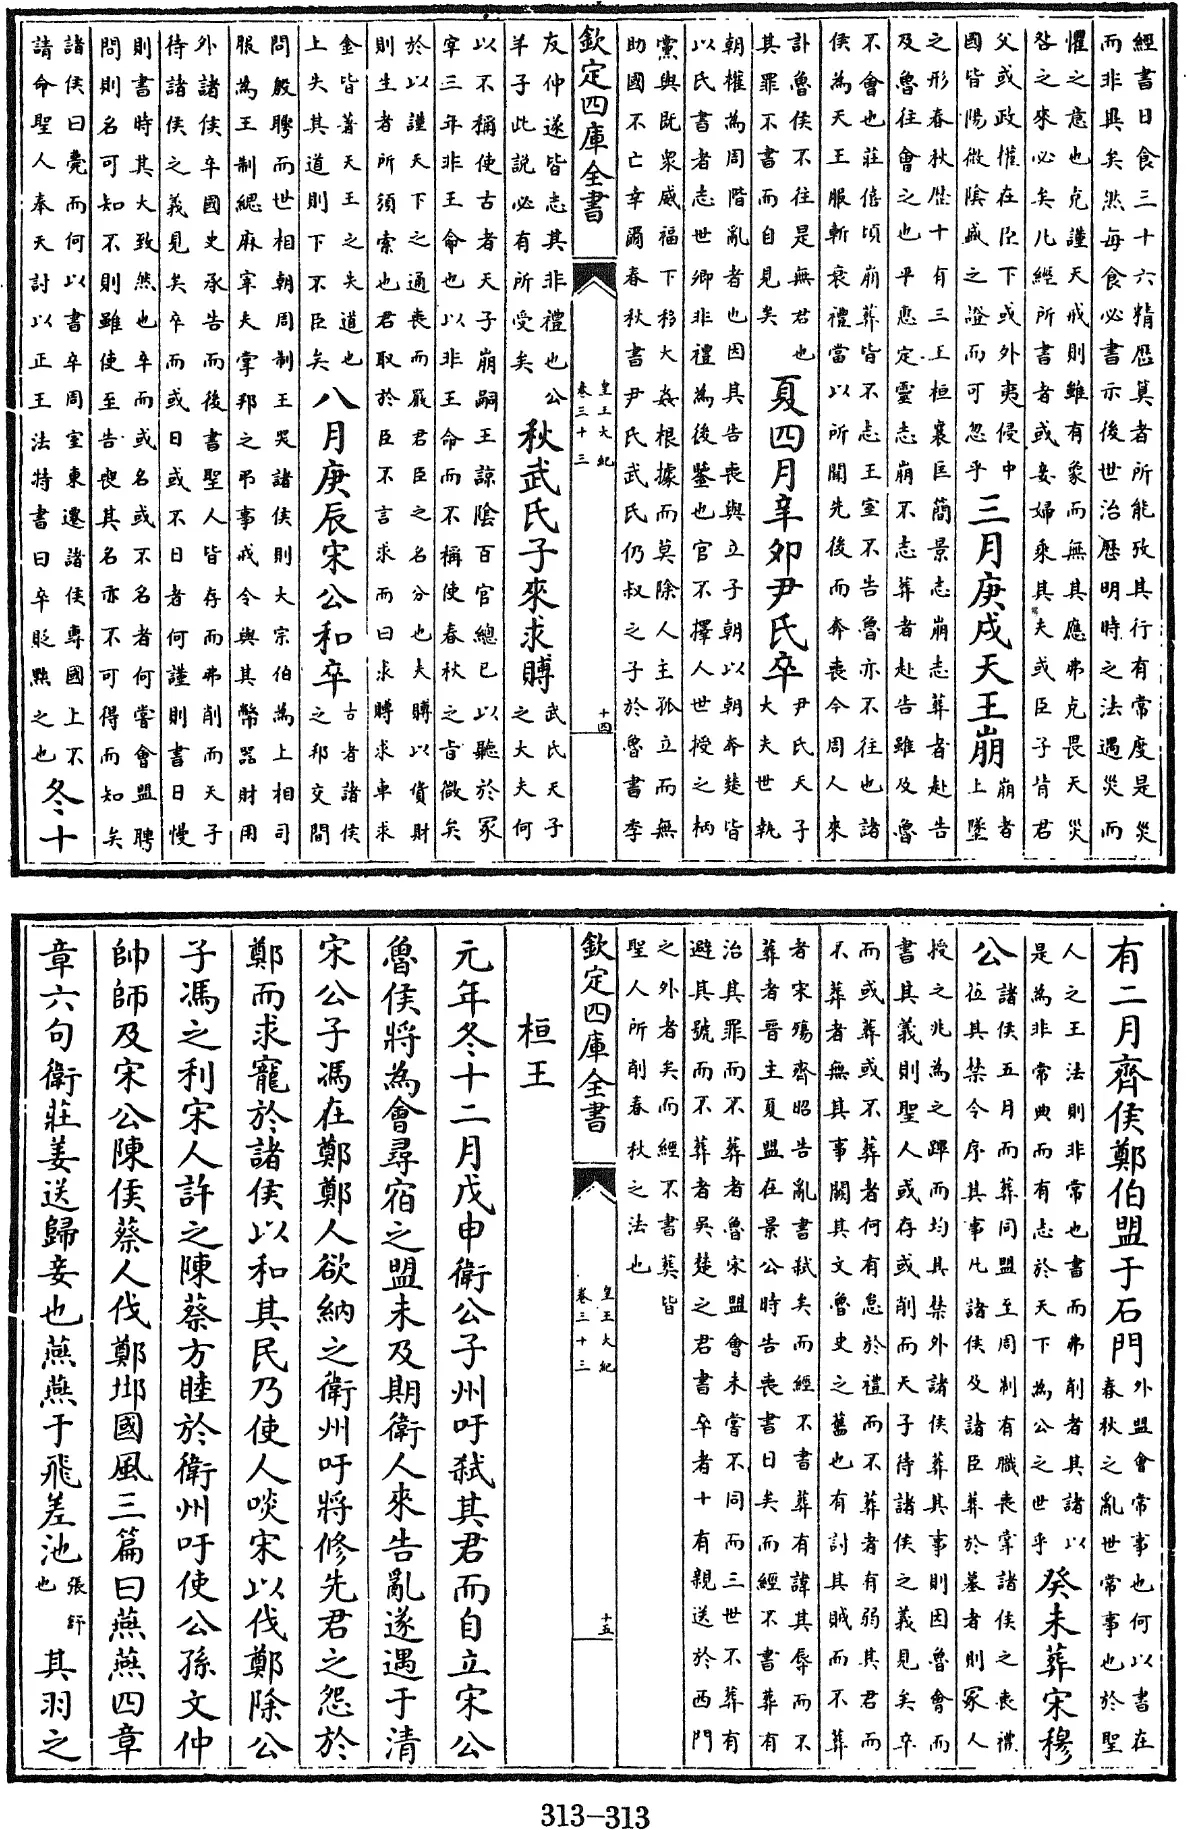 經書日食三十六精厯算者所能攷其行有常度是災
而非異矣然每食必書示後世治厯明時之法遇災而
懼之意也克謹天戒則雖有象而無其應弗克畏天災
咎之來必矣凡經所書者或妾婦乘其夫或臣子背君
父或政權在臣下或外夷侵中
國皆陽微陰盛之證而可忽乎
三月庚戌天王崩
崩者
上墜
之形春秋歴十有三王桓襄匡簡景志崩志葬者赴告
及魯往會之也平惠定靈志崩不志葬者赴告雖及魯
不會也莊僖頃崩葬皆不志王室不告魯亦不往也諸
侯為天王服斬衰禮當以所聞先後而奔喪今周人來
訃魯侯不往是無君也
其罪不書而自見矣
夏四月辛卯尹氏卒
尹氏天子
大夫世執
朝權為周階亂者也因其告喪與立子朝以朝奔楚皆
以氏書者志世卿非禮為後鑒也官不擇人世授之柄
黨與既衆威福下移大姦根據而莫除人主孤立而無
助國不亡幸爾春秋書尹氏武氏仍叔之子於魯書季
欽定四庫全書
皇王大紀
卷三十三
十四
友仲遂皆志其非禮也公
羊子此說必有所受矣
秋武氏子來求賻
武氏天子
之大夫何
以不稱使古者天子崩嗣王諒陰百官總已以聽於冢
宰三年非王命也以非王命而不稱使春秋之旨微矣
於以謹天下之通喪而嚴君臣之名分也夫賻以貨財
則生者所須索也君取於臣不言求而曰求賻求車求
金皆著天王之失道也
上失其道則下不臣矣
八月庚辰宋公和卒
古者諸侯
之邦交間
問殷聘而世相朝周制王哭諸侯則大宗伯為上相司
服為王制緦麻宰夫掌邦之弔事戒令與其幣器財用
外諸侯卒國史承告而後書聖人皆存而弗削而天子
待諸侯之義見矣卒而或日或不日者何謹則書日慢
則書時其大致然也卒而或名或不名者何嘗會盟聘
問則名可知不則雖使至告喪其名亦不可得而知矣
諸侯曰薨而何以書卒周室東遷諸侯專國上不
請命聖人奉天討以正王法特書曰卒貶黜之也
冬十
有二月齊侯鄭伯盟于石門
外盟會常事也何以書在
春秋之亂世常事也於聖
人之王法則非常也書而弗削者其諸以
是為非常典而有志於天下為公之世乎
癸未葬宋穆
公
諸侯五月而葬同盟至周制有職喪掌諸侯之喪禮
莅其禁令序其事凡諸侯及諸臣葬於墓者則冢人
授之兆為之蹕而均其禁外諸侯葬其事則因魯會而
書其義則聖人或存或削而天子待諸侯之義見矣卒
而或葬或不葬者何有怠於禮而不葬者有弱其君而
不葬者無其事闕其文魯史之舊也有討其賊而不葬
者宋殤齊昭告亂書弑矣而經不書葬有諱其辱而不
葬者晉主夏盟在景公時告喪書日矣而經不書葬有
治其罪而不葬者魯宋盟會未嘗不同而三世不葬有
避其號而不葬者吳楚之君書卒者十有親送於西門
之外者矣而經不書葬皆
聖人所削春秋之法也
欽定四庫全書
皇王大紀
卷三十三
十五
桓王
元年冬十二月戊申衛公子州吁弑其君而自立宋公
魯侯將為會尋宿之盟未及期衛人來告亂遂遇于清
宋公子馮在鄭鄭人欲納之衛州吁將修先君之怨於
鄭而求寵於諸侯以和其民乃使人啖宋以伐鄭除公
子馮之利宋人許之陳蔡方睦於衛州吁使公孫文仲
帥師及宋公陳侯蔡人伐鄭邶國風三篇曰燕燕四章
章六句衛莊姜送歸妾也燕燕于飛差池
張舒
也
其羽之
313-313